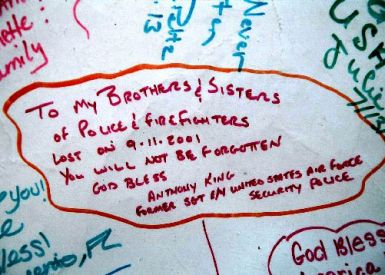 ette!
amily
Never
USA
Julie
TO MY BROTHERS & SISTERS
OF POLICE & FIREFIGHTERS
LOST ON 9·11·2001
YOU WILL NOT BE FORGOTTEN
GOD BLESS
ANTHONY KING
FORMER SGT E/4 UNITED STATES AIR FORCE
SECURITY POLICE
You!
less!
FL
God Bless